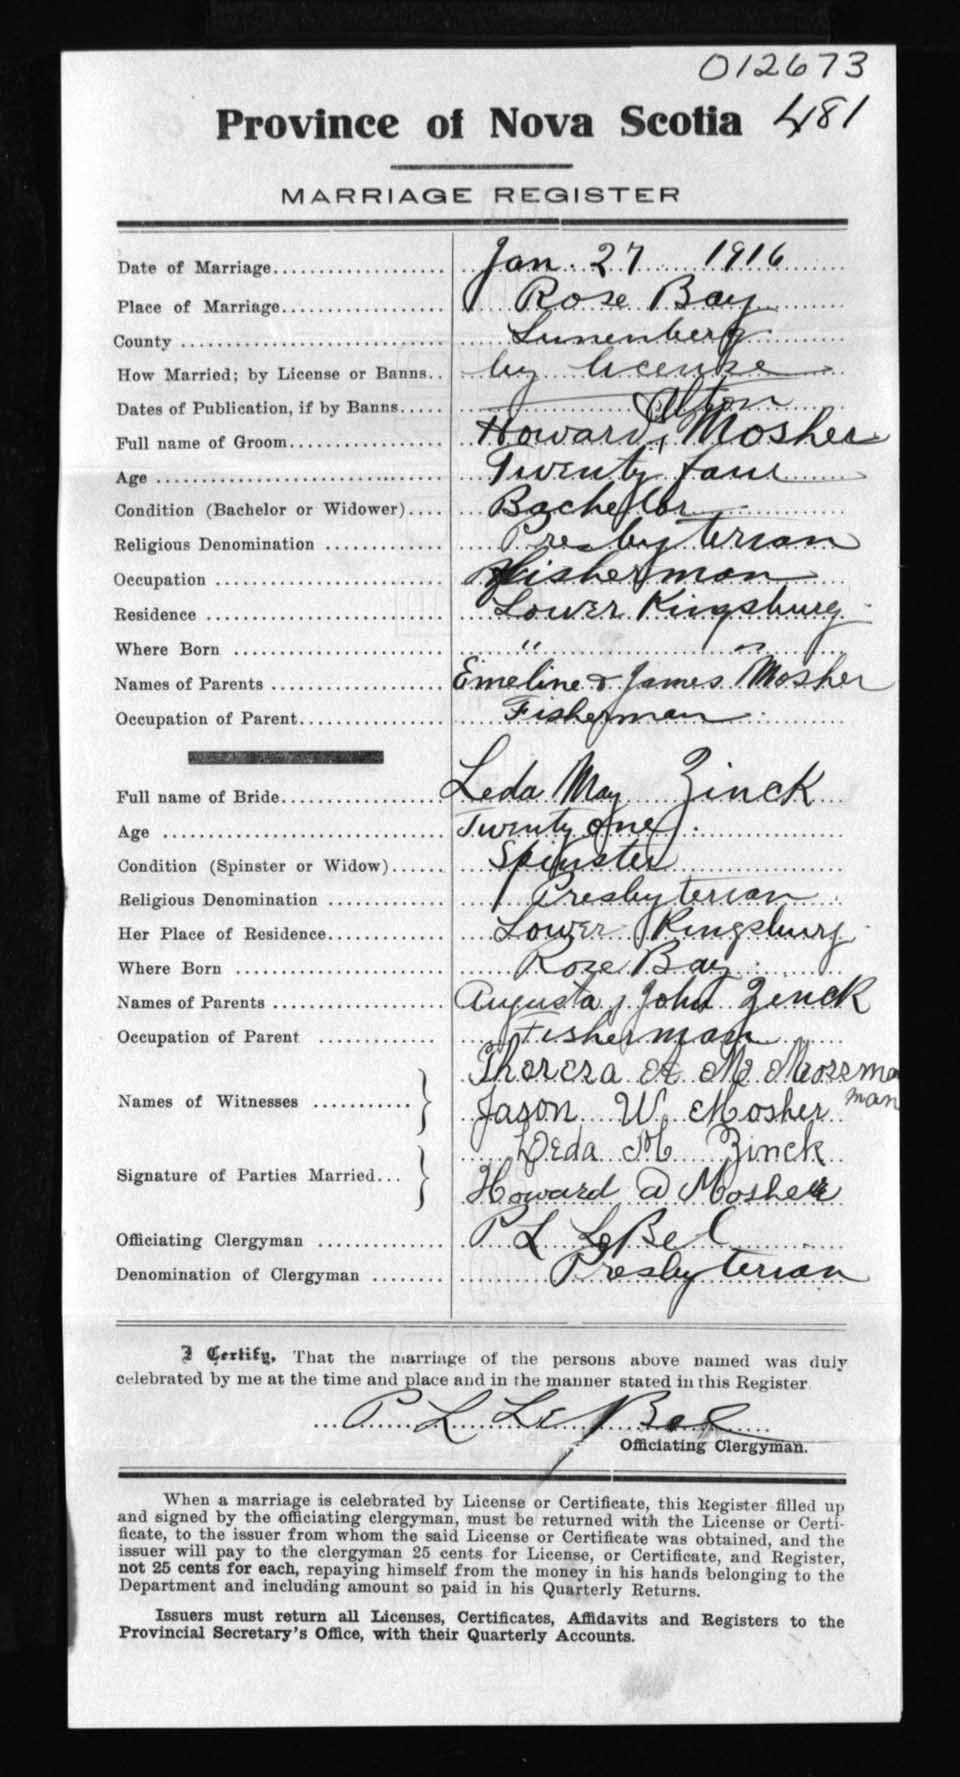 012673
Province of Nova Scotia 481
MARRIAGE REGISTER
Date of Marriage Jan. 27 1916
Place of Marriage Rose Bay
County Lunenberg
How Married; by License or Banns by license
Dates of Publication, if by Banns
Alton
Full name of Groom Howard Mosher
Age Twenty four
Condition (Bachelor or Widower) Bachelor
Religious Denomination Presbyterian
Occupation Fisherman
Residence Lower Kingsburg
Where Born " "
Names of Parents Emeline & James Mosher
Occupation of Parent Fisherman
Full name of Bride Leda May Zinck
Age Twenty one
Condition (Spinster or Widow) Spinster
Religious Denomination Presbyterian
Her Place of Residence Lower Kingsburg
Where Born Rose Bay
Names of Parents Augusta, John Zinck
Occupation of Parent Fisherman
Names of Witnesses
man
Jason W. Mosher
Signature of Parties Married Leda M Zinck
Howard A Mosher
Officiating Clergyman P L LeBel
Denomination of Clergyman Presbyterian
I Certify, That the marriage of the persons above named was duly
celebrated by me at the time and place and in the manner stated in this Register
P L LeBel
Officiating Clergyman.
When a marriage is celebrated by License or Certificate, this Register filled up
and signed by the officiating clergyman, must be returned with the License or Certi-
ficate, to the issuer from whom the said License or Certificate was obtained, and the
issuer will pay to the clergyman 25 cents for License, or Certificate, and Register,
not 25 cents for each, repaying himself from the money in his hands belonging to the
Department and including amount so paid in his Quarterly Returns.
Issuers must return all Licenses, Certificates, Affidavits and Registers to the
Provincial Secretary's Office, with their Quarterly Accounts.